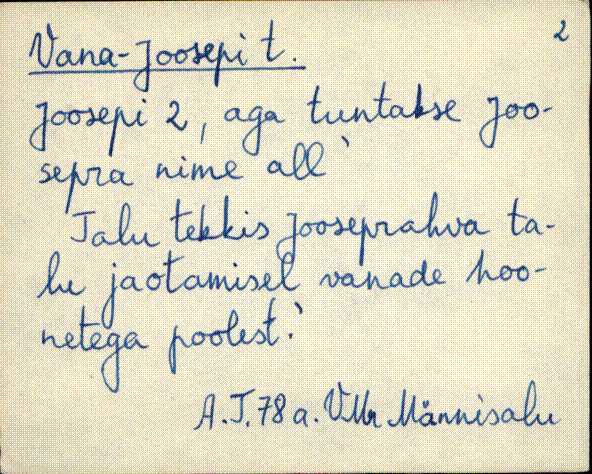 2
Vana-Joosepi t.
Joosepi 2, aga tuntakse Joo-
sepra nime all`
Talu tekkis Jooseprahva ta-
lu jaotamisel vanade hoo-
netega poolest.`
A.T. 78 a. VMr Männisalu